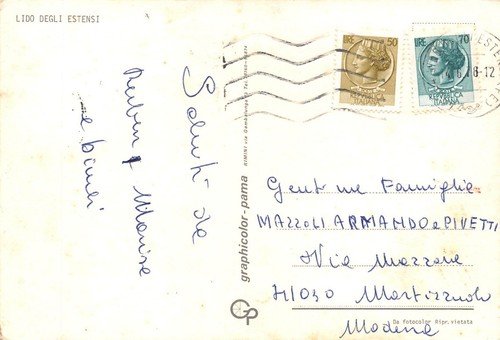 LIDO DEGLI ESTENSI
Saluti da
Ruben e Marisa
e bimbi
graphicolor - pama
RIMINI via Gambalunga
LIRE 50
REPUBBLICA
ITALIANA
LIRE 70
REPUBBLICA
ITALIANA
-12
Gent.me Famiglie
MAZZOLI ARMANDO e PIVETTI
Via Mazzone
41030 Mortizzuolo
Modena
GP
Da fotocolor Ripr. vietata